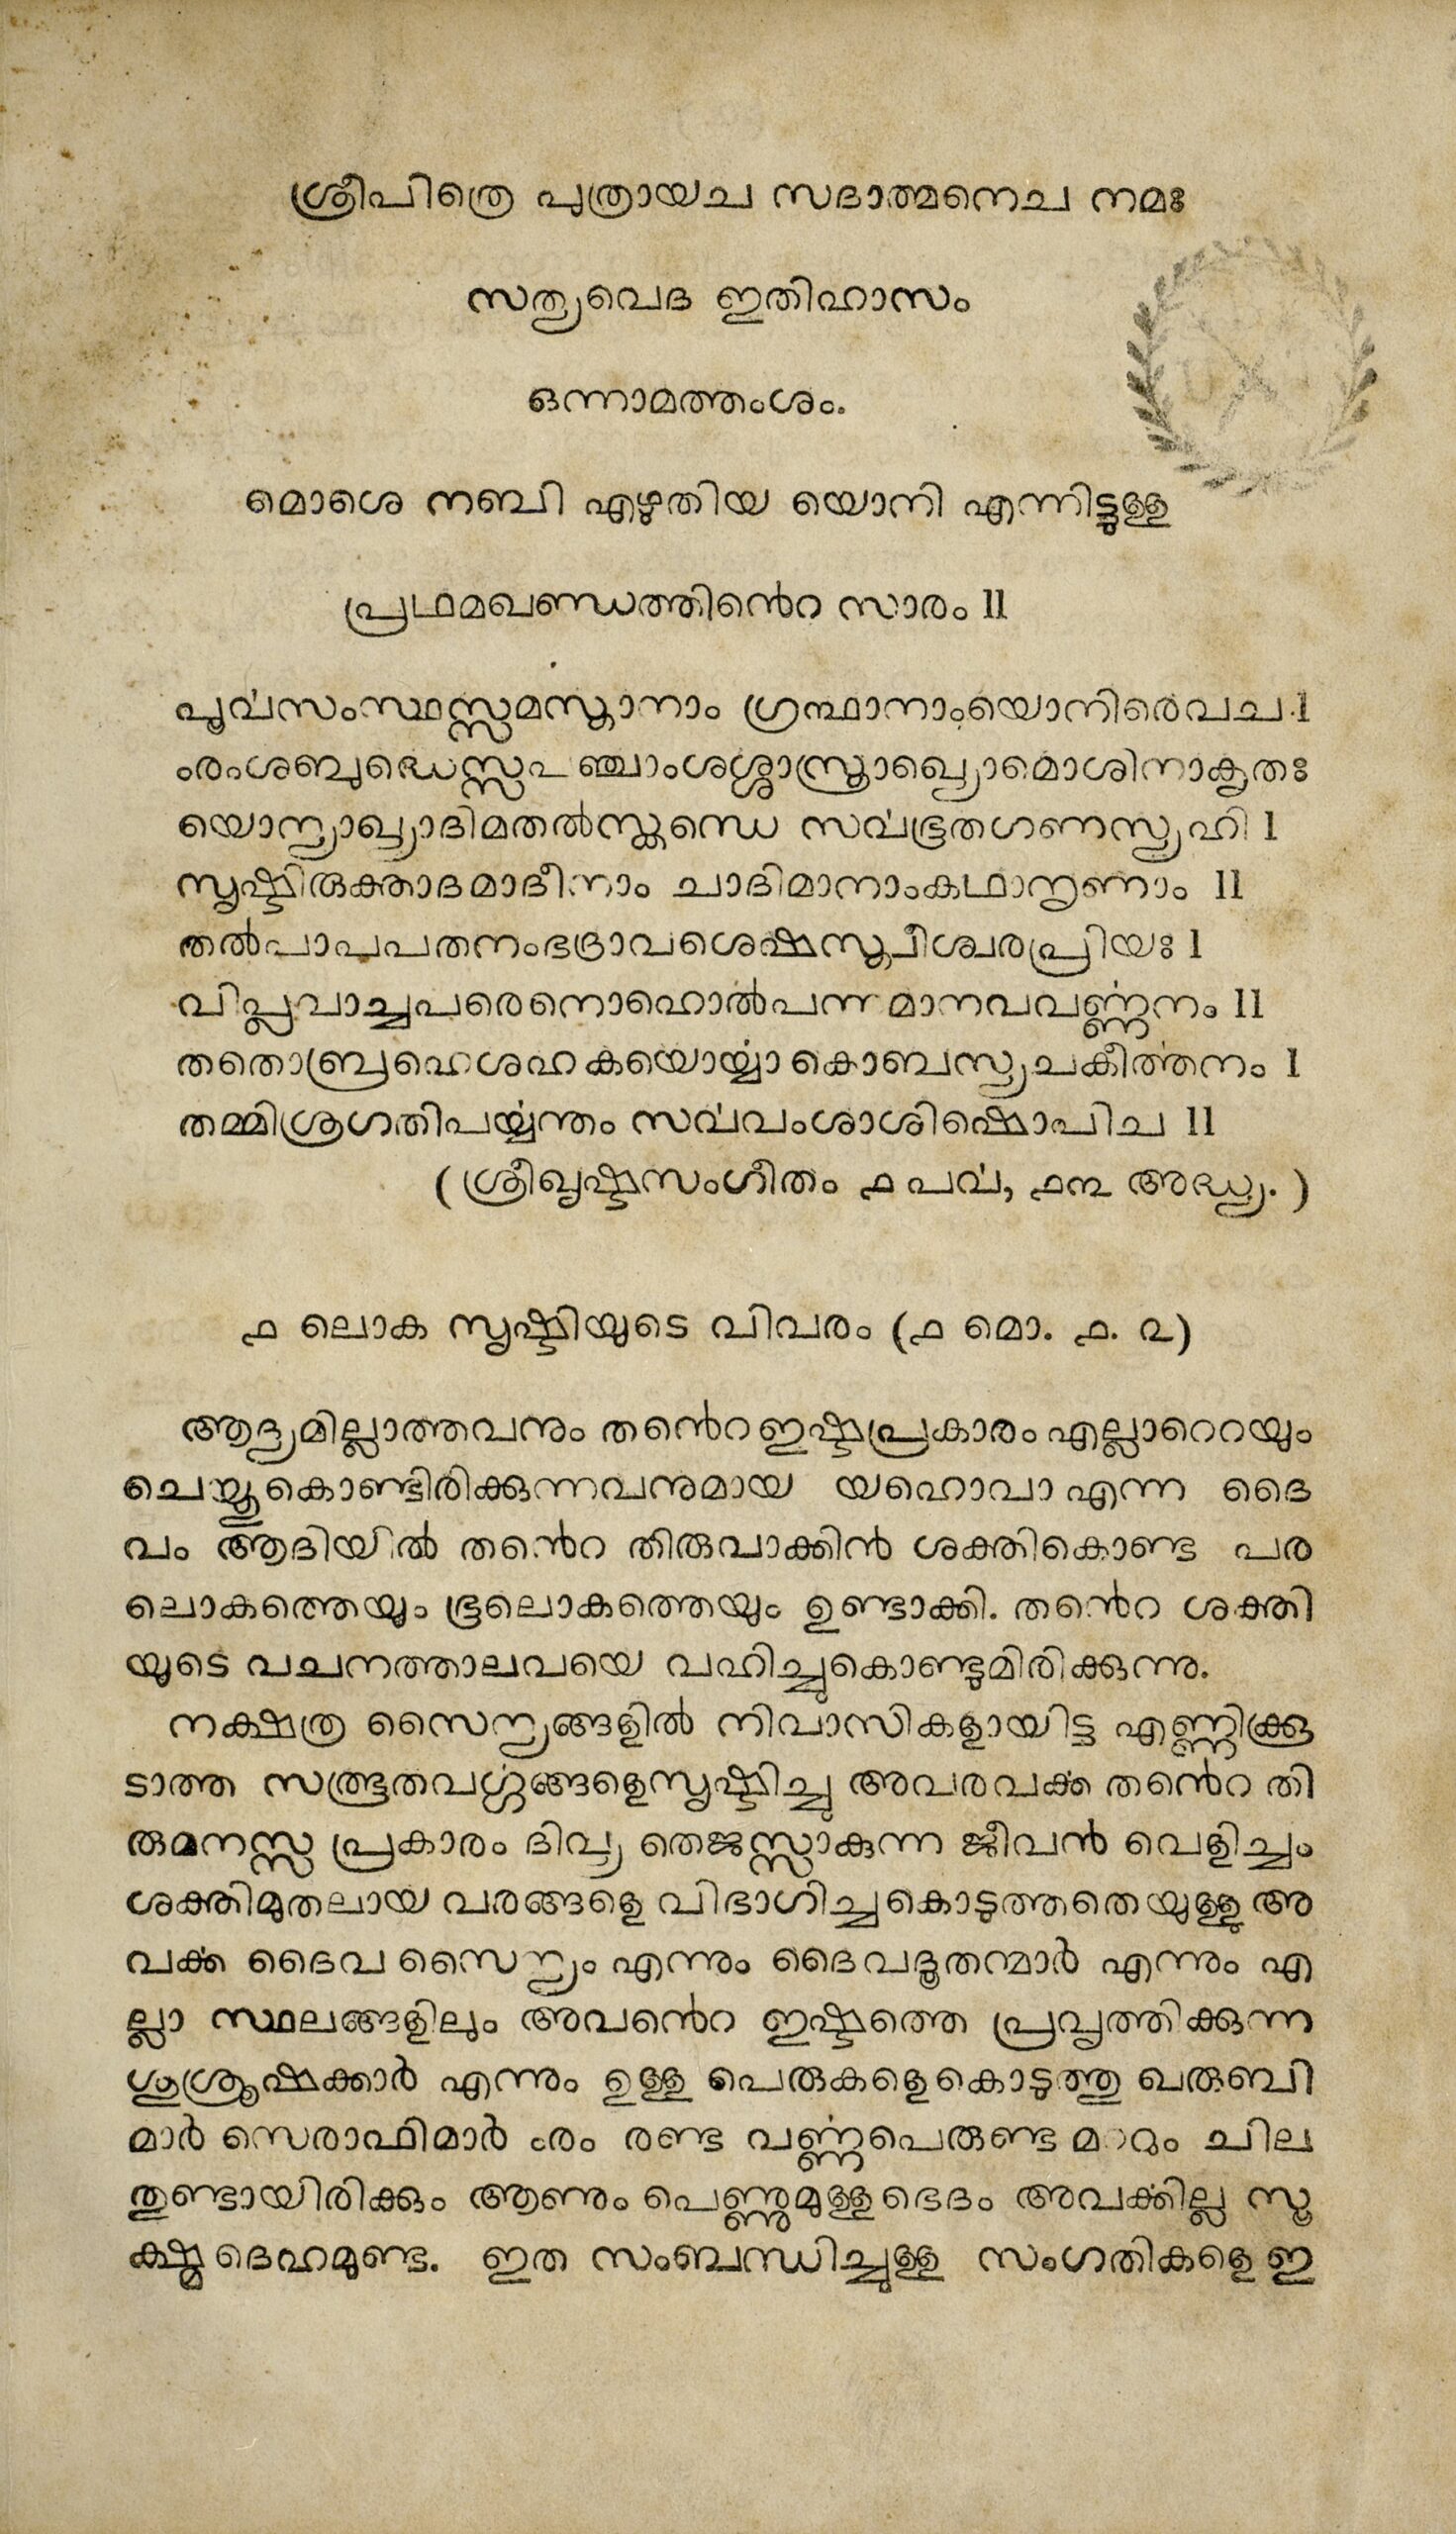 ശ്രീപിത്രെ പുത്രായച സദാത്മനെച നമഃ
സത്യവെദ ഇതിഹാസം
ഒന്നാമത്തംശം.
മൊശെ നബി എഴുതിയ യൊനി എന്നിട്ടുള്ള
പ്രഥമഖണ്ഡത്തിൻെറ സാരം ॥
പൂൎവസംസ്ഥസ്സമസ്താനാം ഗ്രന്ഥാനാംയൊനിരെവച ।
ൟശബുദ്ധെസ്സപഞ്ചാംശശ്ശാസ്ത്രാഖ്യൊമൊശിനാകൃതഃ
യൊന്യാഖ്യാദിമതൽസ്കന്ധെ സൎവഭൂതഗണസ്യഹി ।
സൃഷ്ടിരുക്താദമാദീനാം ചാദിമാനാംകഥാനൃണാം ॥
തൽപാപപതനംഭദ്രാവശെഷസ്ത്വീശ്വരപ്രിയഃ ।
വിപ്ലവാച്ചപരെനൊഹൊൽപന്നമാനവവൎണ്ണനം ॥
തതൊബ്രഹെശഹകയൊൎയ്യാകൊബസ്യചകീൎത്തനം ।
തമ്മിശ്രഗതിപൎയ്യന്തം സൎവവംശാശിഷൊപിച ॥
( ശ്രീഖൃഷ്ടസംഗീതം ൧ പൎവ, ൧൩ അദ്ധ്യ. )
൧ ലൊക സൃഷ്ടിയുടെ വിവരം (൧ മൊ. ൧. ൨)
ആദ്യമില്ലാത്തവനും തൻെറ ഇഷ്ടപ്രകാരം എല്ലാറെറയും
ചെയ്തുകൊണ്ടിരിക്കുന്നവനുമായ യഹൊവാ എന്ന ദൈ
വം ആദിയിൽ തൻെറ തിരുവാക്കിൻ ശക്തികൊണ്ട പര
ലൊകത്തെയും ഭൂലൊകത്തെയും ഉണ്ടാക്കി. തൻെറ ശക്തി
യുടെ വചനത്താലവയെ വഹിച്ചുകൊണ്ടുമിരിക്കുന്നു.
നക്ഷത്ര സൈന്യങ്ങളിൽ നിവാസികളായിട്ട എണ്ണിക്കൂ
ടാത്ത സത്ഭൂതവൎഗ്ഗങ്ങളെസൃഷ്ടിച്ചു അവരവൎക്ക തൻെറ തി
രുമനസ്സ പ്രകാരം ദിവ്യ തെജസ്സാകുന്ന ജീവൻ വെളിച്ചം
ശക്തിമുതലായ വരങ്ങളെ വിഭാഗിച്ചകൊടുത്തതെയുള്ളു അ
വൎക്ക ദൈവ സൈന്യം എന്നും ദൈവദൂതന്മാർ എന്നും എ
ല്ലാ സ്ഥലങ്ങളിലും അവൻെറ ഇഷ്ടത്തെ പ്രവൃത്തിക്കുന്ന
ശുശ്രൂഷക്കാർ എന്നും ഉള്ള പെരുകളെകൊടുത്തു ഖരുബി
മാർ സെരാഫിമാർ ൟ രണ്ട വൎണ്ണപെരുണ്ട മററും ചില
തുണ്ടായിരിക്കും ആണും പെണ്ണുമുള്ളഭെദം അവൎക്കില്ല സൂ
ക്ഷ്മ ദെഹമുണ്ട. ഇത സംബന്ധിച്ചുള്ള സംഗതികളെ ഇ